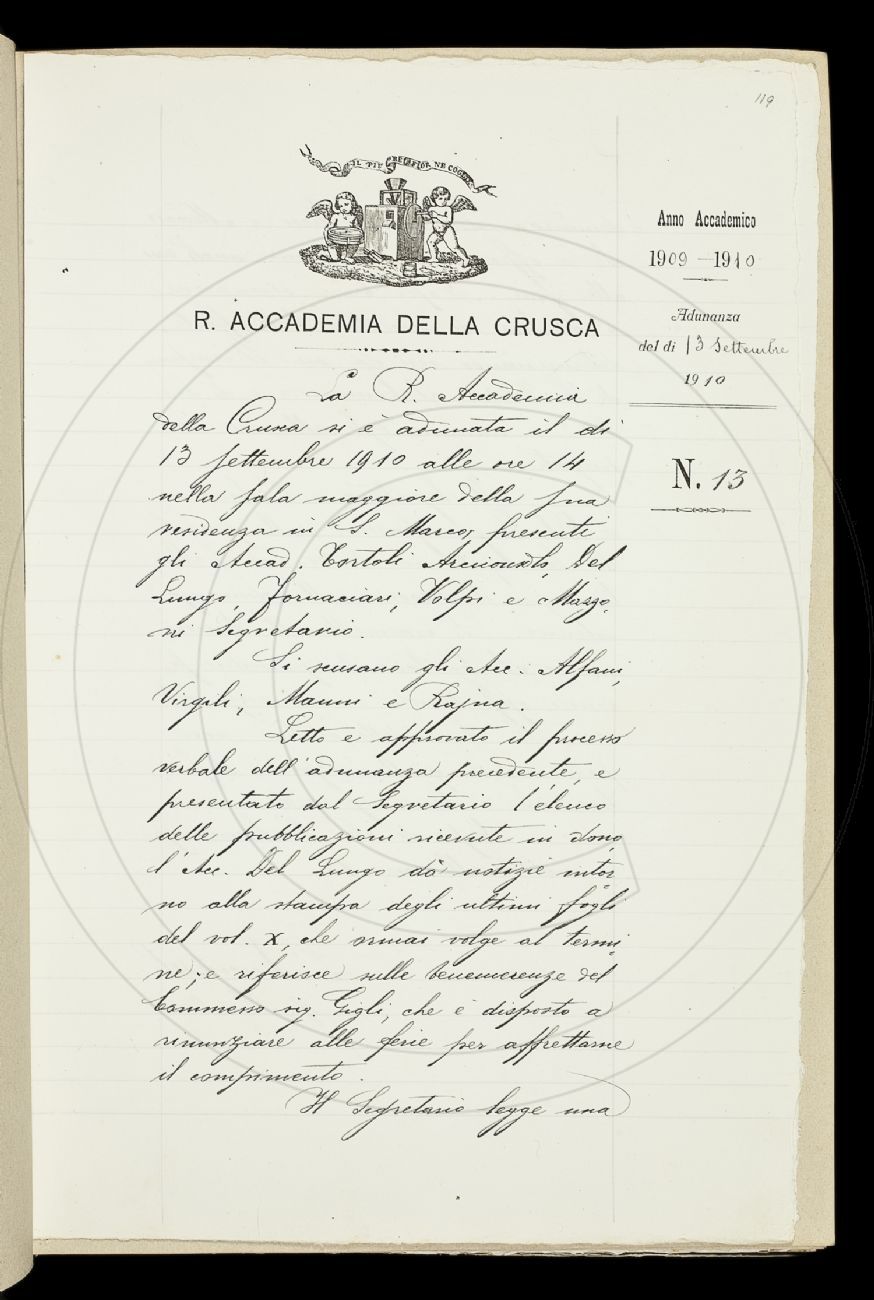 119
IL PIÙ BEL FIOR NE COGLIE
R. ACCADEMIA DELLA CRUSCA
Anno Accademico
1909-1910
Adunanza
del dì 13 Settembre
1910
N. 13
La R. Accademia
della Crusca si è adunata il dì
13 settembre 1910 alle ore 14
nella sala maggiore della sua
residenza in S. Marco, presenti
gli Accad. Tortoli Arciconsolo, Del
Lungo, Fornaciari, Volpi e Mazzo-
ni Segretario.
Si scusano gli Acc. Alfani,
Virgili, Manni e Rajna.
Letto e approvato il processo
verbale dell'adunanza precedente, e
presentato dal Segretario l'elenco
delle pubblicazioni ricevute in dono,
l'Acc. Del Lungo dà notizie intor-
no alla stampa degli ultimi fogli
del vol. X, che ormai volge al termi-
ne; e riferisce sulle benemerenze del
Commesso sig. Gigli, che è disposto a
rinunziare alle ferie per affrettarne
il compimento.
Il Segretario legge una